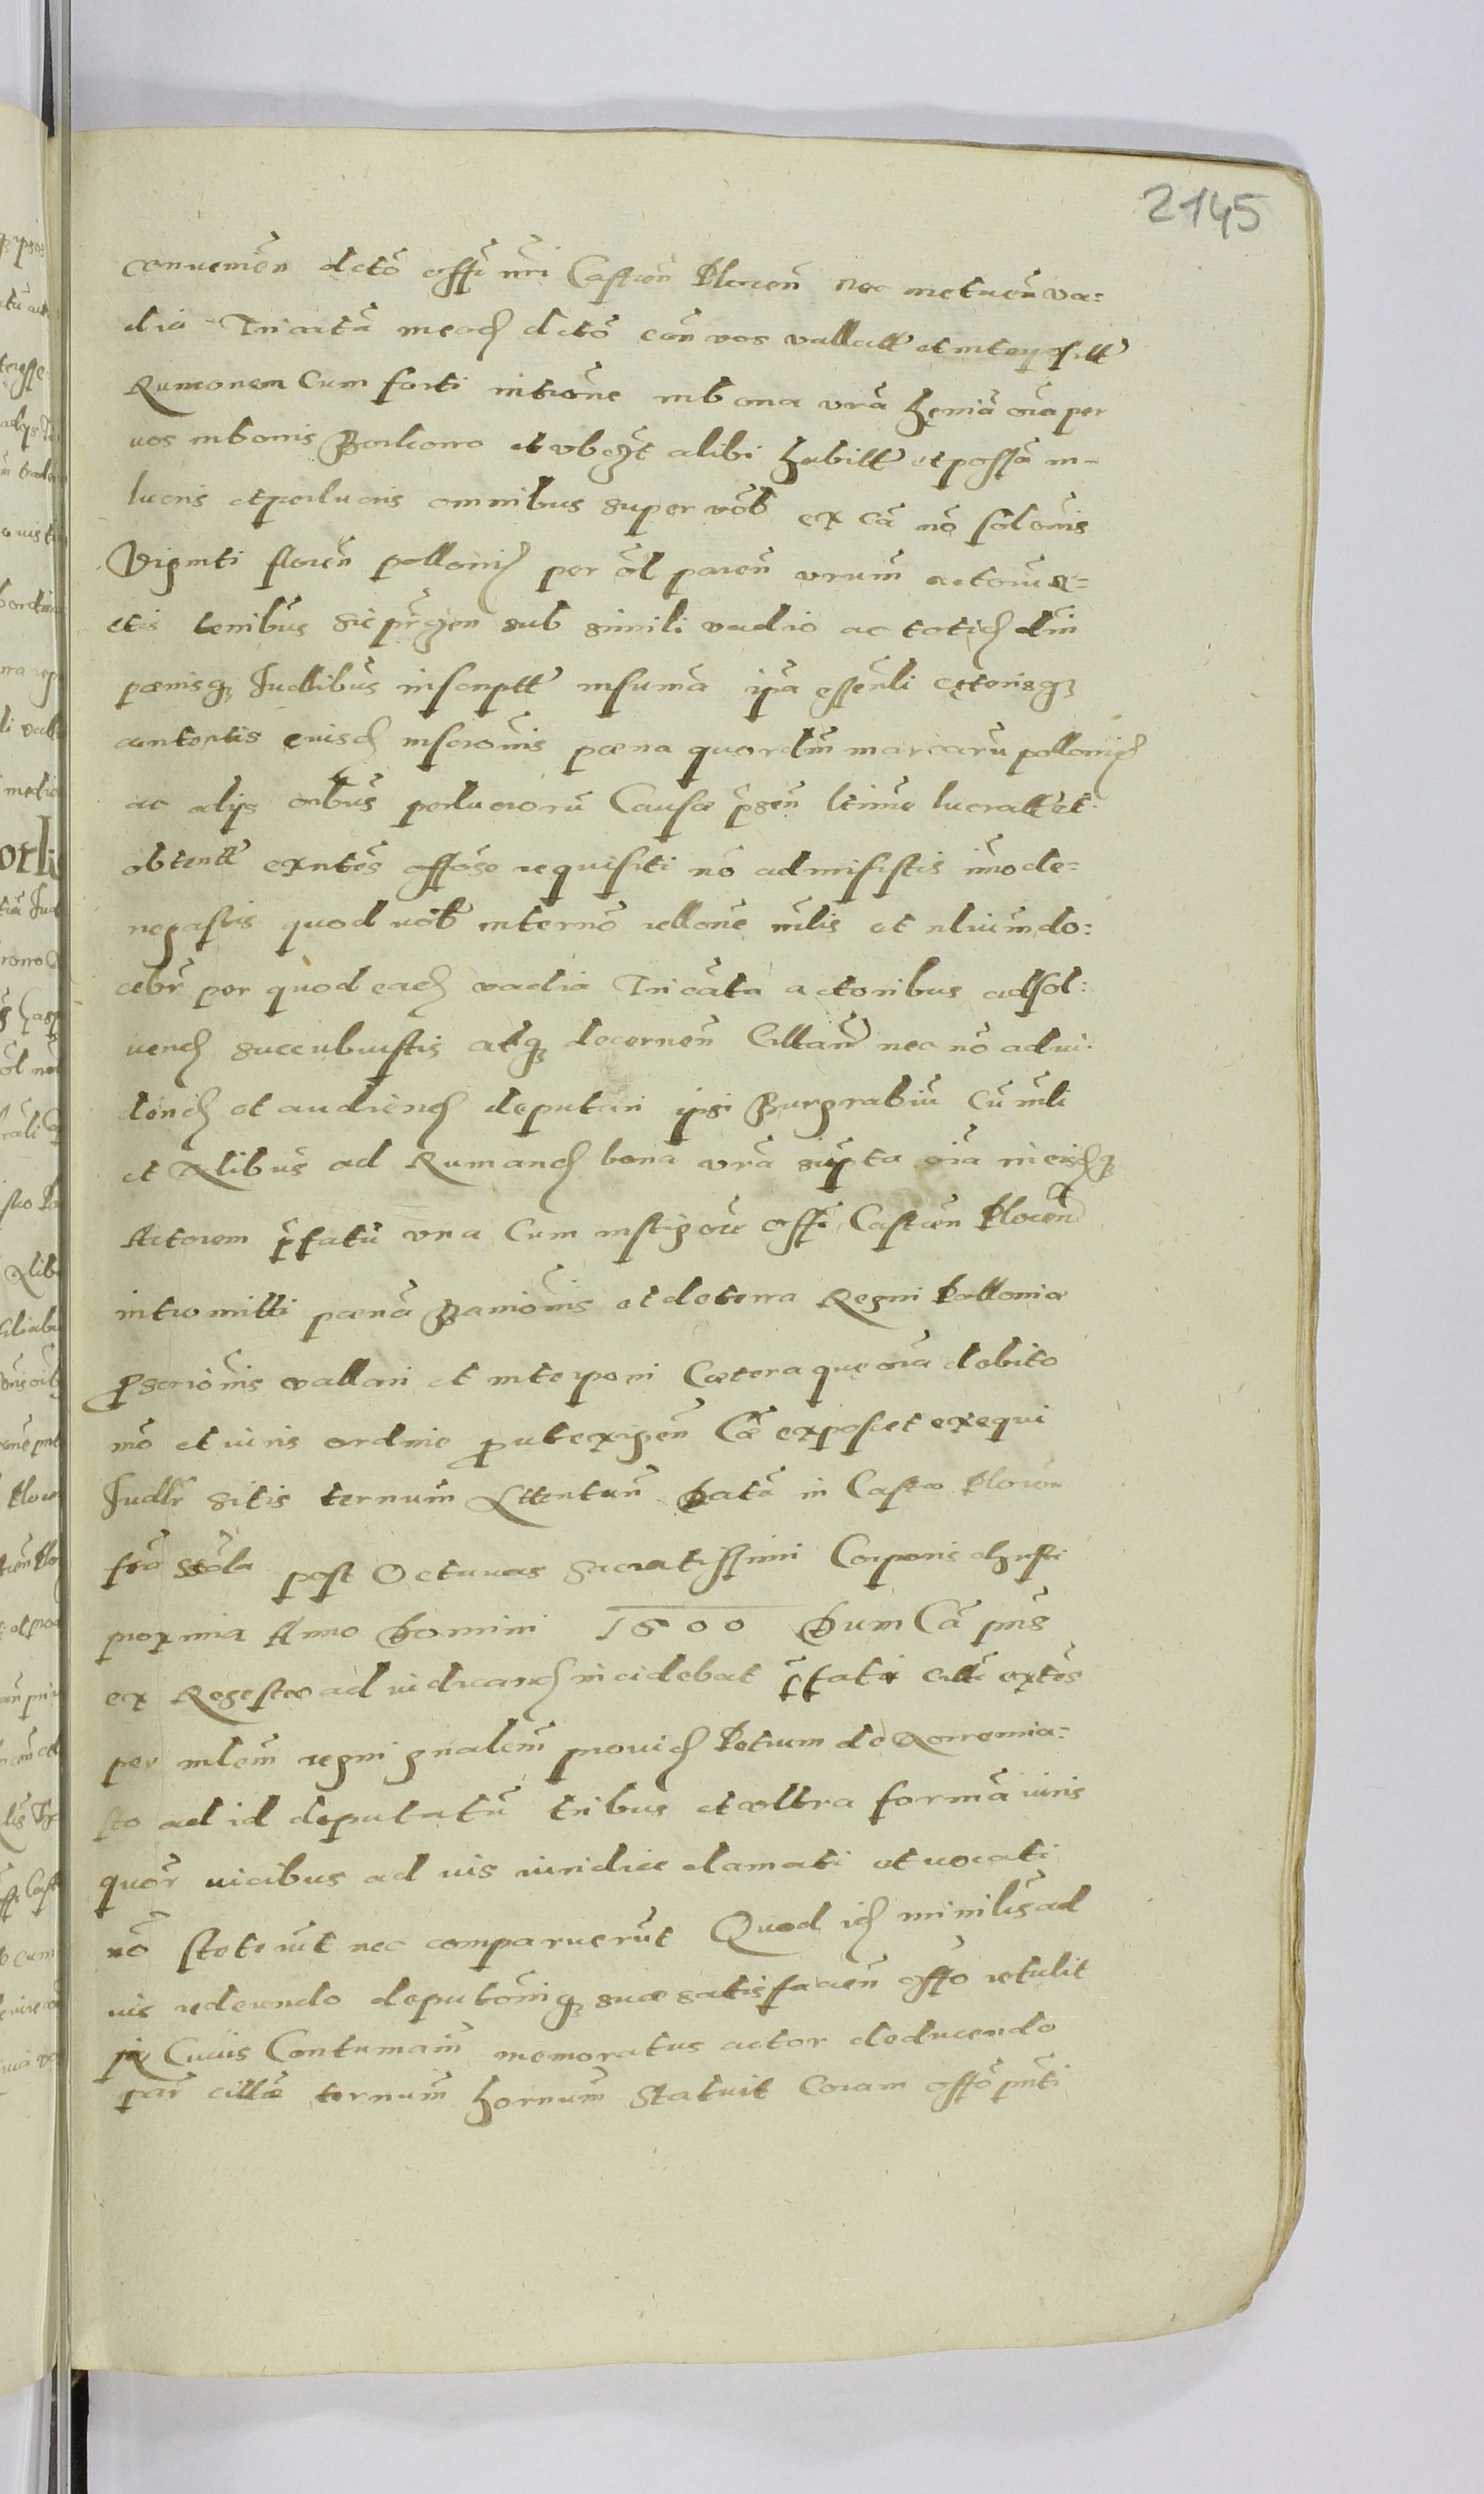 2145
conuenien dcto offi nri Castren Plocen nec metuen va=
dia Tricata mead dcto con vos vallatt et interposit
Rumonem cum forti intione in bona vra hęnia oia per
vos in bonis Borkowo et vbq alibi habitt et possa in
lucris et perlucris omnibus super vob ex ca no solonis
Viginti floren pollonic per ol paren vrum actoru a=
ctis tenibus sic prgen sub simili vadio ac totid dni
pænisq Judlibus inscriptt in suma ipa essenli cęterisq
contentis eiusd inscronis pæna quordm marcaru pollonic
ac alijs oibus perlucroru Causæ psen ltime lucratt et
obtentt exntes offose requisiti no admisistis imo de=
negastis quod vob interno rellone mlis et nliu in do:
cebr per quod ead vadia Tricata actoribus adsol:
uend succubuistis atq decernen Cittan nec no ad vi:
dend et audiend deputari ipsi Burgrabiu cu mli
et Nlibus ad Rumand bona vra supta oia in eisdq
Actorem pfatu vna cum instigore offi Castren Plocen
intromitti pæna Banionis et de terra Regni Polloniæ
pscrionis vallari et interponi Cætera que oia debito
mo et iuris ordine prout exigen Cæ exposcet exequi
Judlr sitis ternum Attentun Data in Castro Plocen
fria scda post Octauas Sacratissimi Corporis christi
proxima Anno Domini 1600 Dum Ca pns
ex Regestro ad iudicand incidebat pfati citti extes
per mlem regni gnalem prouid Petrum de Koremia=
sto ad id deputatu tribus et vltra forma iuris
quor vicibus ad ius iuridice clamati et vocati
no steterut nec comparuerut Quod id minilis ad
ius redeundo deputoniq suæ satisfacien offo retulit
In Cuius Contumam memoratus actor deducendo
par cittæ ternum hornum Statuit Coram offo pnti